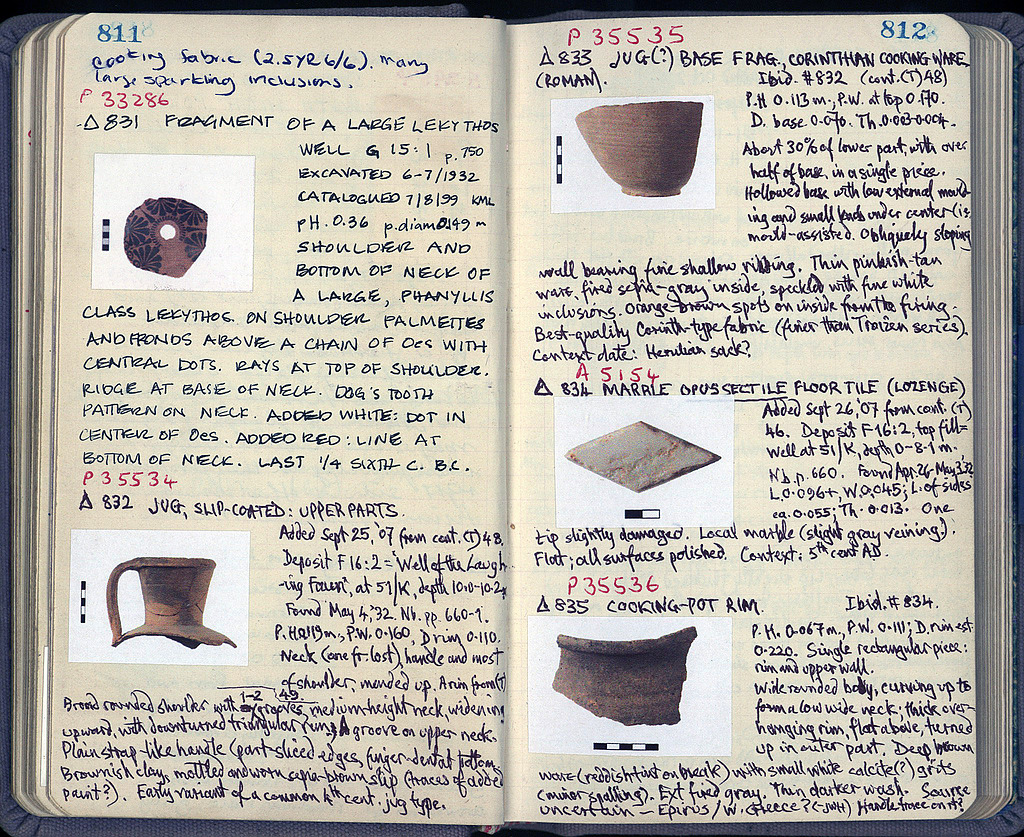 811
cooking fabric (2.5YR 6/6). many
large sparkling inclusions.
P 33286
Δ831 FRAGMENT OF A LARGE LEKYTHOS
WELL G 15:1 p. 750
EXCAVATED 6-7/1932
CATALOGUED 7/8/99 KML
PH. 0.36 p.diam 0.149 m
SHOULDER AND
BOTTOM OF NECK OF
A LARGE, PHANYLLIS
CLASS LEKYTHOS. ON SHOULDER PALMETTES
AND FRONDS ABOVE A CHAIN OF OeS WITH
CENTRAL DOTS. RAYS AT TOP OF SHOULDER.
RIDGE AT BASE OF NECK. DOG'S TOOTH
PATTERN ON NECK. ADDED WHITE: DOT IN
CENTER OF OeS. ADDED RED: LINE AT
BOTTOM OF NECK. LAST 1/4 SIXTH C. B.C.
P 35534
Δ 832 JUG, SLIP-COATED: UPPER PARTS.
Added Sept 25, '07 from cont. (T) 48,
Deposit F 16:2 = "Well of the Laugh-
ing Faun", at 51/K, depth 10.0-10.2,
Found May 4, '32. Nb. pp. 660-1.
P.H. 0.119 m., P.W. 0.160, D rim 0.110.
Neck (one fr. lost), handle and most
of shoulder, mended up. A rim from (T)
49.
Broad rounded shoulder with 1-2 grooves, medium-height neck, widening
upward, with downturned triangular rim; A groove on upper neck.
Plain strap-like handle (part-sliced edges, finger-dented bottom.
Brownish clay, mottled and worn sepia-brown slip (traces of added
paint?). Early variant of a common 4th cent. jug type.
812
P 35535
Δ 833 JUG(?) BASE FRAG., CORINTHIAN COOKING WARE
(ROMAN). Ibid. #832 (cont. (T) 48)
P.H 0.113 m., P.W. at top 0.170.
D. base 0.070. Th. 0.003-0.004.
About 30% of lower part, with over
half of base, in a single piece.
Hollowed base with low external mould-
ing and small knob under center (is
mould-assisted. Obliquely sloping
wall bearing fine shallow ribbing. Thin pinkish-tan
ware, fired sepia-gray inside, speckled with fine white
inclusions. Orange-brown spots on inside from the firing.
Best-quality Corinth-type fabric (finer than Troizen series).
Context date: Herulian sack?
A 5154
Δ 834 MARBLE OPUS SECTILE FLOOR TILE (LOZENGE)
Added Sept 26, '07 from cont. (T)
46. Deposit F 16:2, top fill =
well at 51/K, depth 0-8.1 m.,
Nb. p. 660. Found Apr. 26-May 3, '32
L. 0.096+, W. 0.045; L. of sides
ca. 0.055; Th. 0.013. One
tip slightly damaged. Local marble (slight gray veining.)
Flat; all surfaces polished. Context: 5th cent AD.
P 35536
Δ 835 COOKING-POT RIM. Ibid. #834.
P.H. 0.067 m., P.W. 0.111; D. rim est
0.220. Single rectangular piece:
rim and upper wall.
Wide rounded body, curving up to
form a low wide neck: thick over-
hanging rim, flat above, turned
up in outer part. Deep brown
ware (reddish tint on break) with small white calcite(?) grits
(minor spalling). Ext fired gray. Thin darker wash. Source
uncertain — Epirus / W. Greece? (-JWH) Handle trace on rt?